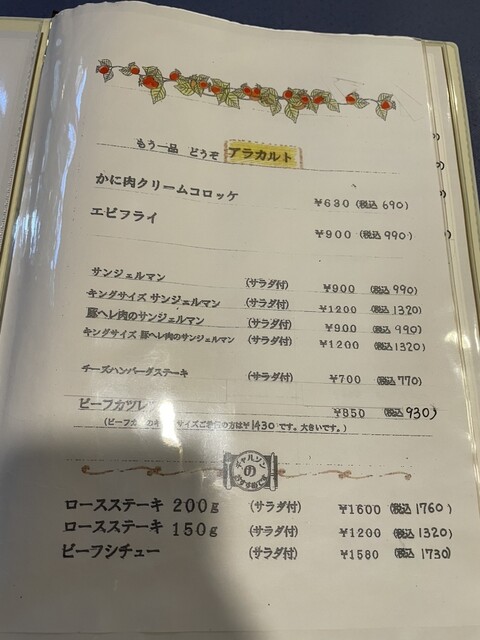 もう一品 どうぞ アラカルト
かに肉クリームコロッケ ¥630 (税込 690)
エビフライ ¥900 (税込 990)
サンジェルマン (サラダ付) ¥900 (税込 990)
キングサイズ サンジェルマン (サラダ付) ¥1200 (税込 1320)
豚ヘレ肉のサンジェルマン (サラダ付) ¥900 (税込 990)
キングサイズ 豚ヘレ肉のサンジェルマン (サラダ付) ¥1200 (税込 1320)
チーズハンバーグステーキ (サラダ付) ¥700 (税込 770)
ビーフカツレツ ¥850 (税込 930)
(ビーフカツのキングサイズご希望の方は¥1430です。大きいです。)
チャルソン
の
ロースステーキ 200g (サラダ付) ¥1600 (税込 1760)
ロースステーキ 150g (サラダ付) ¥1200 (税込 1320)
ビーフシチュー (サラダ付) ¥1580 (税込 1730)